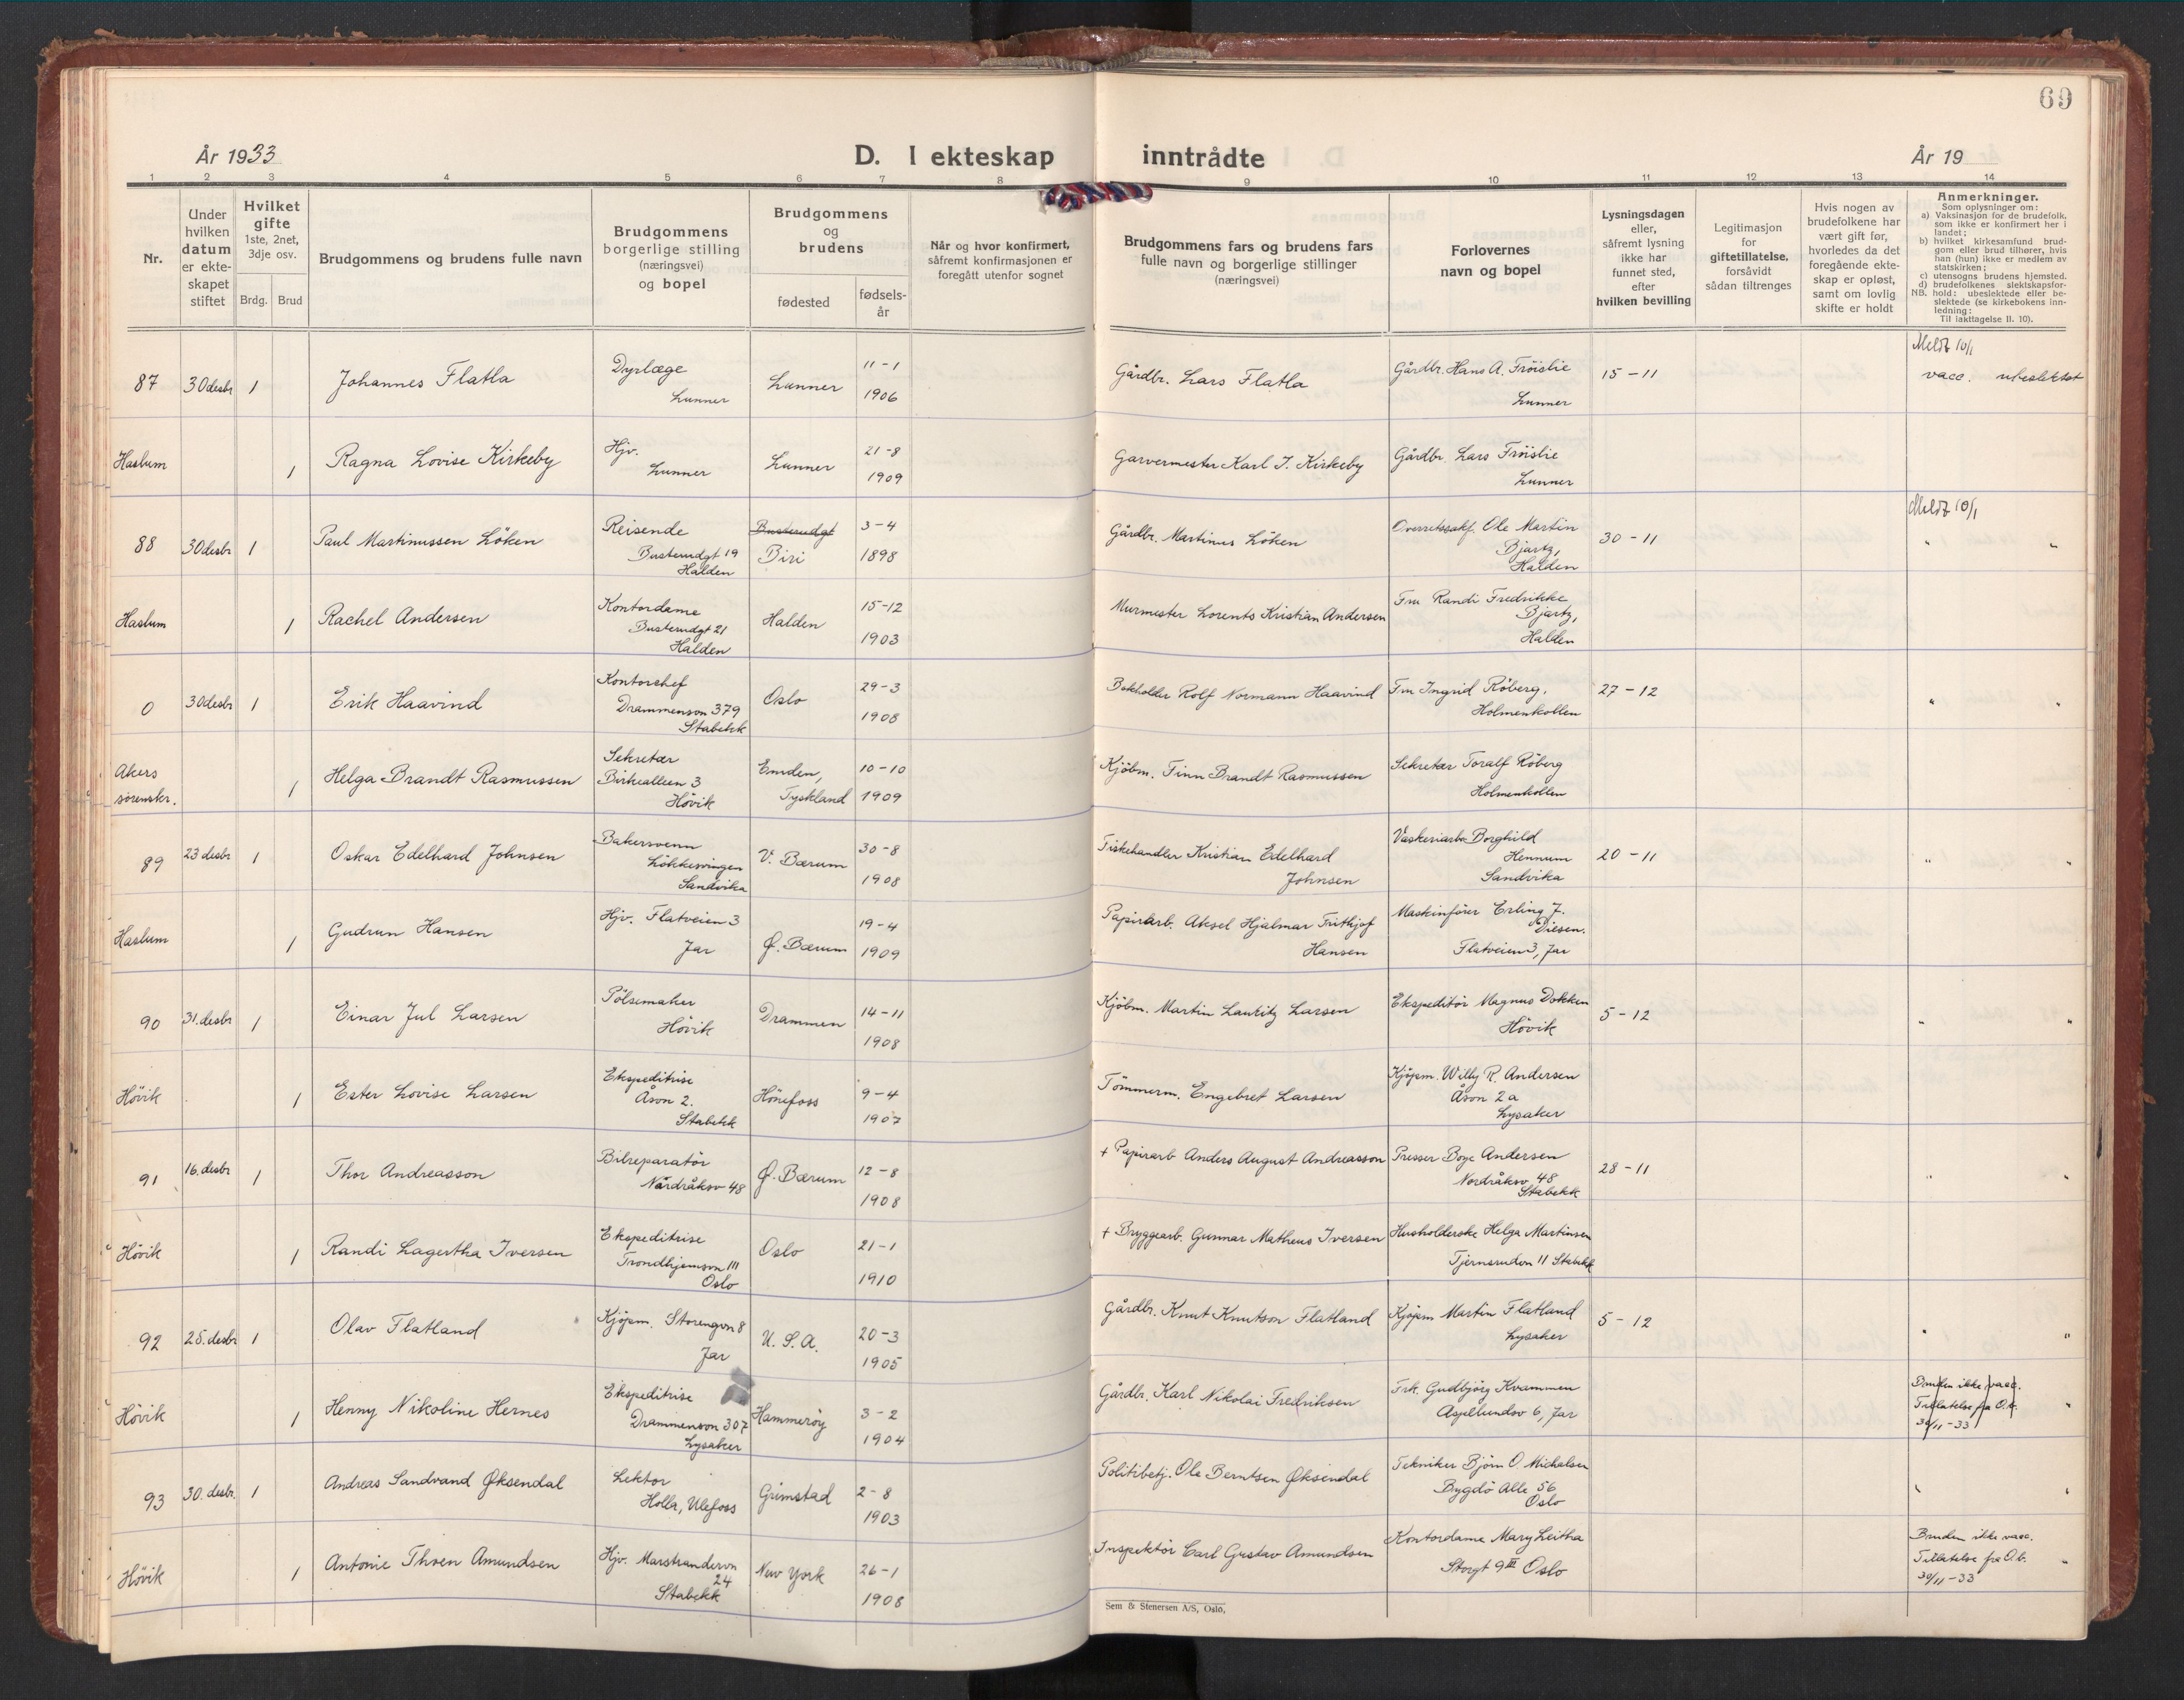 69
År 1933
D. I ekteskap inntrådte
År 19
1 2 3 4 5 6 7 8 9 10 11 12 13 14
Nr.
Under
hvilken
datum
er ekte-
skapet
stiftet
Hvilket
gifte
1ste, 2net,
3dje osv.
Brdg. Brud
Brudgommens og brudens fulle navn
Brudgommens
borgerlige stilling
(næringsvei)
og bopel
Brudgommens
og
brudens
fødested
fødsels-
år
Når og hvor konfirmert,
såfremt konfirmasjonen er
foregått utenfor sognet
Brudgommens fars og brudens fars
fulle navn og borgerlige stillinger
(næringsvei)
Forlovernes
navn og bopel
Lysningsdagen
eller,
såfremt lysning
ikke har
funnet sted,
efter
hvilken bevilling
Legitimasjon
for
giftetillatelse,
forsåvidt
sådan tiltrenges
Hvis nogen av
brudefolkene har
vært gift før,
hvorledes da det
foregående ekte-
skap er opløst,
samt om lovlig
skifte er holdt
Anmerkninger.
Som oplysninger om:
a) Vaksinasjon for de brudefolk,
som ikke er konfirmert her i
landet;
b) hvilket kirkesamfund brud-
gom eller brud tilhører, hvis
han (hun) ikke er medlem av
statskirken;
c) utensogns brudens hjemsted.
d) brudefolkenes slektskapsfor-
NB. hold: ubeslektede eller be-
slektede (se kirkebokens inn-
ledning:
Til iakttagelse II. 10).
87 30 desbr 1 Johannes Flatla
Dyrlæge
Lunner
Lunner
11-1
1906
Gårdbr. Lars Flatla
Gårdbr. Hans A. Fröislie
Lunner
15-11
Meldt 10/1
vacc. ubeslektet
Haslum 1 Ragna Lovise Kirkeby
Hjv.
Lunner
Lunner
21-8
1909
Garvermester Karl J. Kirkeby
Gårdbr. Lars Fröislie
Lunner
88 30 desbr 1 Paul Martinussen Löken
Reisende
Busterudgt 19
Halden
Busterudgt
Biri
3-4
1898
Gårdbr. Martinus Löken
Overretssakf. Ole Martin
Bjartz,
Halden
30-11
Meldt 10/1
" "
Haslum 1 Rachel Andersen
Kontordame
Busterudgt 21
Halden
Halden
15-12
1903
Murmester Lorents Kristian Andersen
Fru Randi Fredrikke
Bjartz,
Halden
0 30 desbr 1 Erik Haavind
Kontorchef
Drammensvn 379
Stabekk
Oslo
29-3
1908
Bokholder Rolf Normann Haavind
Fru Ingrid Röberg,
Holmenkollen
27-12
" "
Akers
sorenskr.
1 Helga Brandt Rasmussen
Sekretær
Birkealleen 3
Hövik
Emden,
Tyskland
10-10
1909
Kjöbm. Finn Brandt Rasmussen
Sekretær Toralf Röberg
Holmenkollen
89 23 desbr 1 Oskar Edelhard Johnsen
Bakersvenn
Lökkesvingen
Sandvika
V. Bærum
30-8
1908
Fiskehandler Kristian Edelhard
Johnsen
Vaskeriarb. Borghild
Hennum
Sandvika
20-11
" "
Haslum 1 Gudrun Hansen
Hjv. Flatveien 3
Jar
Ø. Bærum
19-4
1909
Papirarb. Aksel Hjalmar Frithjof
Hansen
Maskinfører Erling J.
Diesen.
Flatveien 3, Jar
90 31. desbr 1 Einar Jul Larsen
Pölsemaker
Hövik
Drammen
14-11
1908
Kjöbm. Martin Lauritz Larsen
Ekspeditör Magnus Dokken
Hövik
5-12
" "
Hövik 1 Ester Lovise Larsen
Ekspeditrise
Åsvn 2.
Stabekk
Hönefoss
9-4
1907
Tömmerm. Engebret Larsen
Kjöpm. Willy R. Andersen
Åsvn 2a
Lysaker
91 16. desbr 1 Thor Andreasson
Bilreparatör
Nordråksv 48
Ø. Bærum
12-8
1908
+ Papirarb Anders August Andreasson
Presser Boye Andersen
Nordråksv 48
Stabekk
28-11
" "
Hövik 1 Randi Lagertha Iversen
Ekspeditrise
Trondhjemsvn 111
Oslo
Oslo
21-1
1910
+ Bryggearb. Gunnar Matheus Iversen
Husholderske Helga Martinsen
Tjernsrudvn 11 Stabekk
92 25. desbr 1 Olav Flatland
Kjöpm. Storengvn 8
Jar
U. S. A.
20-3
1905
Gårdbr. Knut Knutson Flatland
Kjöpm Martin Flatland
Lysaker
5-12
" "
Hövik 1 Henny Nikoline Hernes
Ekspeditrise
Drammensvn 307
Lysaker
Hammeröy
3-2
1904
Gårdbr. Karl Nikolai Fredriksen
Frk. Gudbjörg Kvammen
Aspelundsv 6, Jar
Bruden ikke vacc.
Tillatelse fra O.b.
30/11-33
93 30. desbr. 1 Andreas Sandvand Øksendal
Lektor
Holla, Ulefoss
Grimstad
2-8
1903
Politibetj. Ole Berntsen Øksendal
Tekniker Björn O. Michelsen
Bygdö Alle 56
Oslo
" "
Hövik 1 Antonie Thoen Amundsen
Hjv. Marstrandervn
24
Stabekk
New York
26-1
1908
Inspektör Carl Gustav Amundsen
Kontordame Mary Leitha
Storgt 9 III Oslo
Bruden ikke vacc.
Tillatelse fra O.b. "
30/11-33
Sem & Stenersen A/S, Oslo.